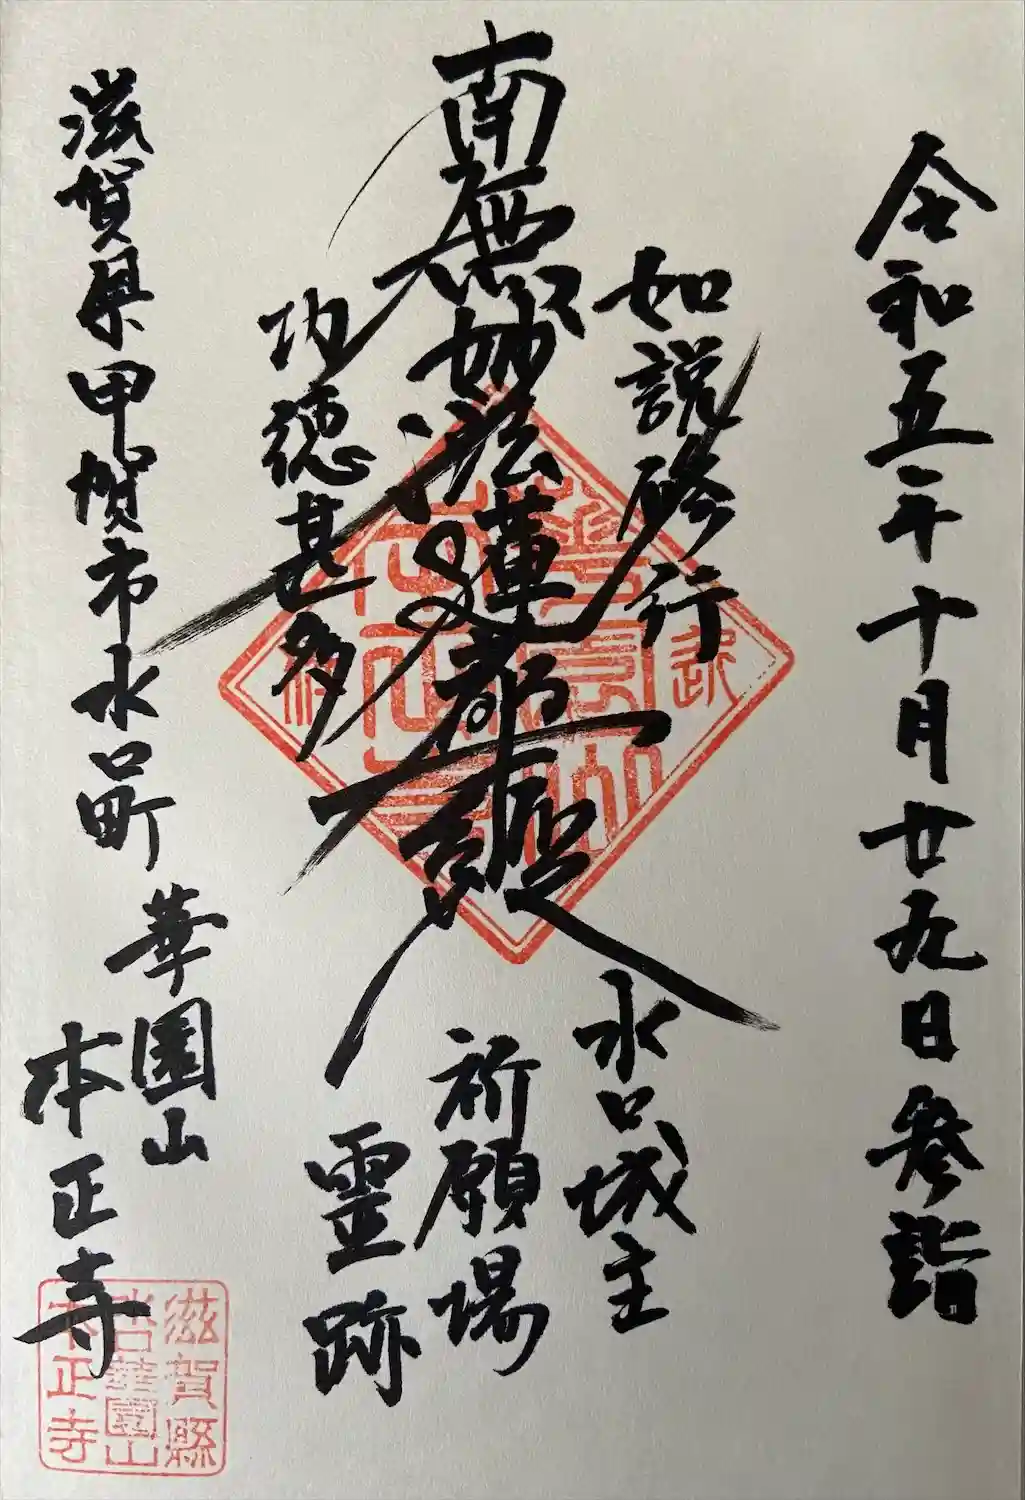 令和五年十月廿九日参詣
如説修行
南無妙法蓮華経
功徳甚多
水口城主
祈願場
霊跡
滋賀県甲賀市水口町
華園山
本正寺
滋賀縣
水口華園山
本正寺